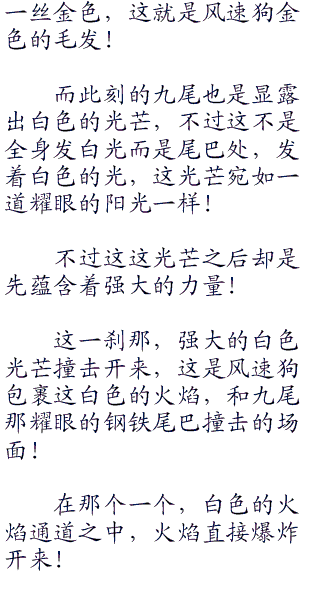 一丝金色，这就是风速狗金
色的毛发！
而此刻的九尾也是显露
出白色的光芒，不过这不是
全身发白光而是尾巴处，发
着白色的光，这光芒宛如一
道耀眼的阳光一样！
不过这这光芒之后却是
先蕴含着强大的力量！
这一刹那，强大的白色
光芒撞击开来，这是风速狗
包裹这白色的火焰，和九尾
那耀眼的钢铁尾巴撞击的场
面！
在那个一个，白色的火
焰通道之中，火焰直接爆炸
开来！